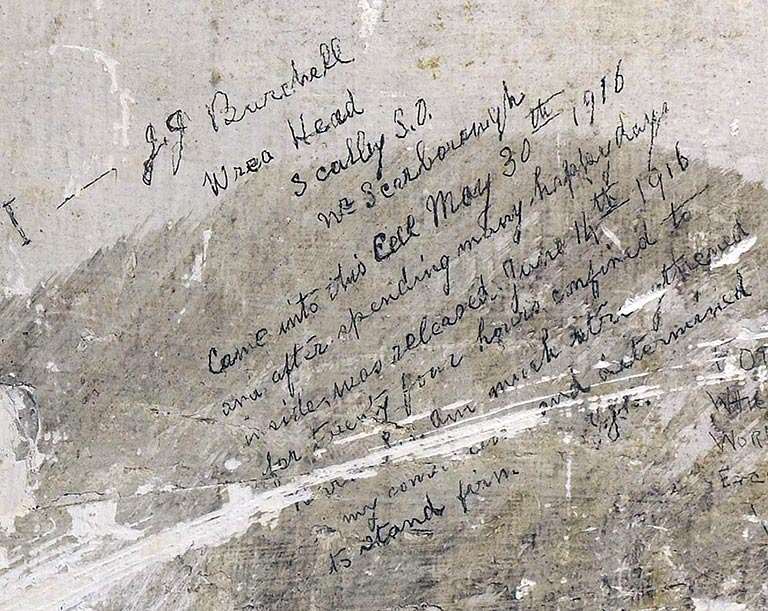 I — J.J. Burchell
Wrea Head
Scalby S.O.
Nr Scarborough
Came into this Cell May 30th 1916
and after spending many happy days
inside, was released June 14th 1916
for twenty four hours confined to
am much strengthened
my and determined
to stand firm.